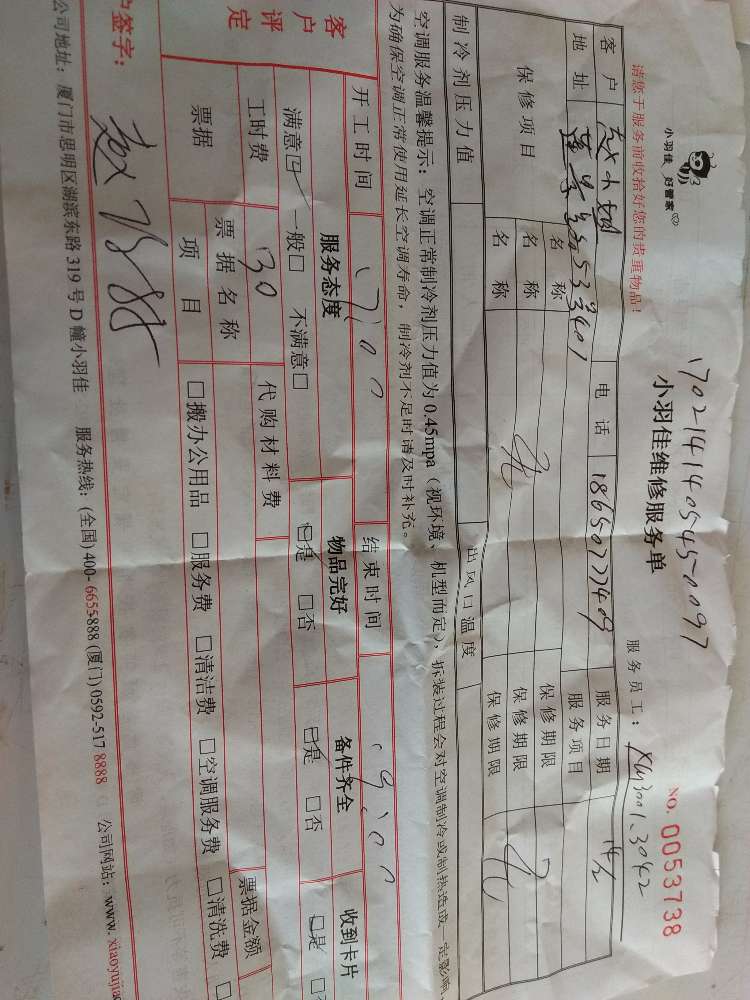 小羽佳 好管家
17021414054500097
小羽佳维修服务单
NO. 0053738
请您于服务前收拾好您的贵重物品！
服务员工：XM3001.3042
客户 赵小姐 电话 18650727409 服务日期 14/2
地址 533401 服务项目
保修项目 名称 无 保修期限 无
名称 保修期限
名称 保修期限
制冷剂压力值 出风口温度
空调服务温馨提示：空调正常制冷剂压力值为0.45mpa（视环境、机型而定），拆装过程会对空调制冷或制热造成一定影响，
为确保空调正常使用延长空调寿命，制冷剂不足时请及时补充。
开工时间 17:00 结束时间 19:00
客户评定 服务态度 物品完好 备件齐全 收到卡片
满意☑ 一般□ 不满意□ □是 □否 □是 □否 □是
工时费 130 代购材料费
票据 票据名称 票据金额
项目 □搬办公用品 □服务费 □清洁费 □空调服务费 □清洗费 □
户签字：
公司地址：厦门市思明区湖滨东路319号D幢小羽佳 服务热线：(全国)400-6655888 (厦门)0592-517 8888 公司网站：www.xiaoyujia